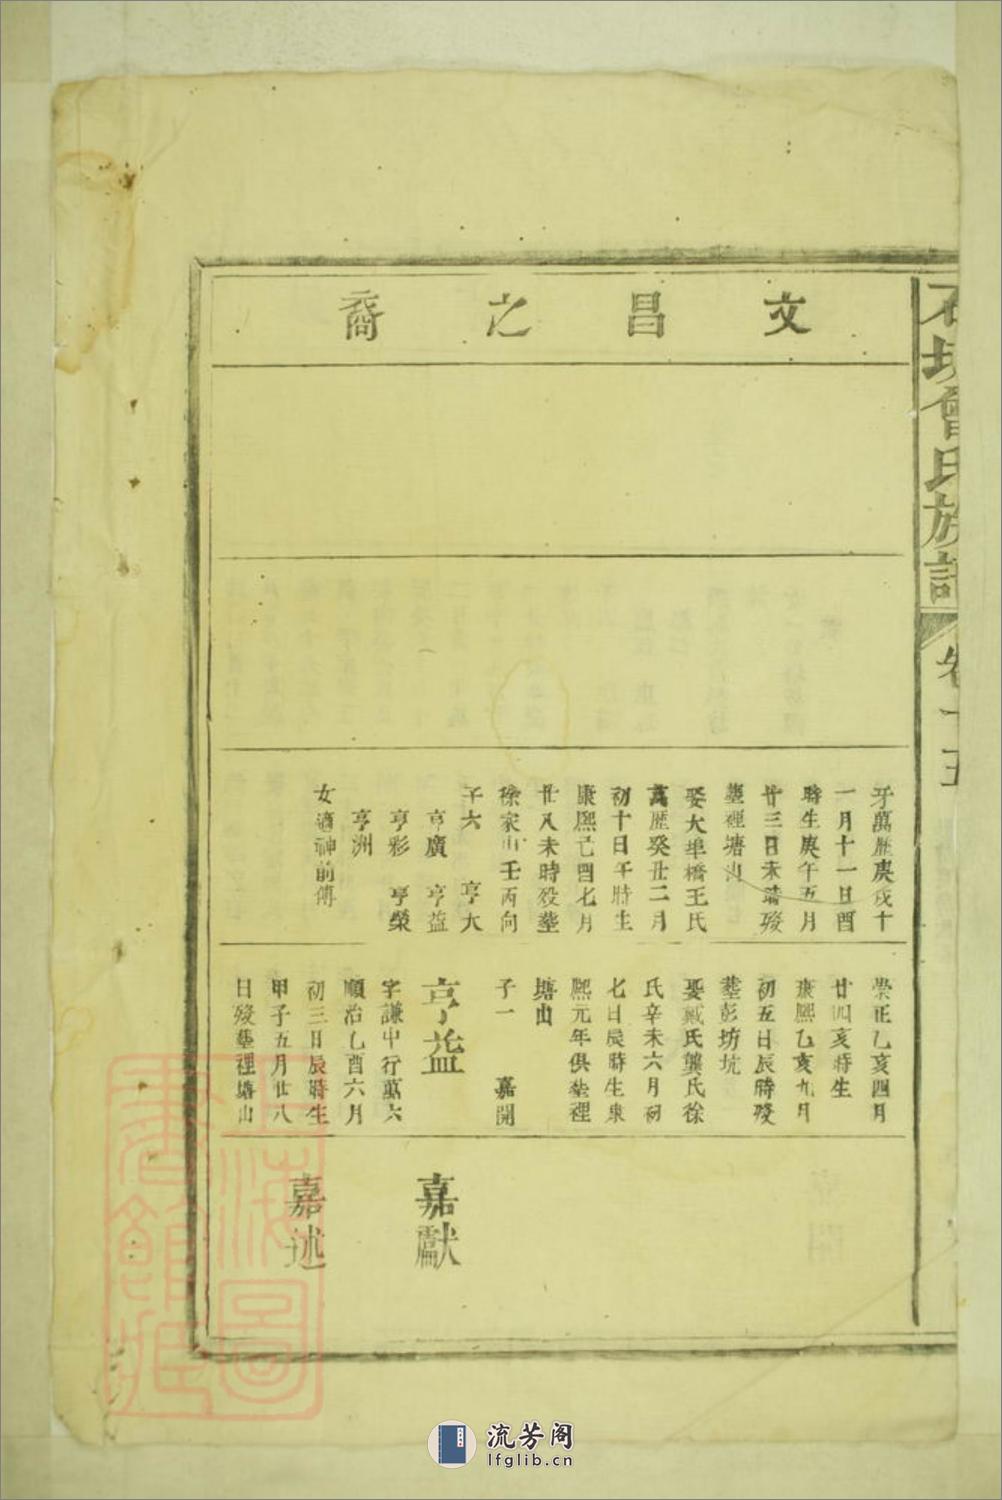 石塘曾氏族譜 卷十五
文昌之裔
牙萬歷庚戌十
一月十一日酉
時生庚午五月
廿三日未時殁
塟裡塘山
娶大埠橋王氏
萬歷癸丑二月
初十日午時生
康熙己酉七月
廿八未時殁塟
徐家山壬丙向
子六 亨大
亨廣 亨益
亨彩 亨榮
亨洲
女適神前傅
崇正乙亥四月
廿四亥時生
康熙乙亥九月
初五日辰時殁
塟彭坊坑
娶戴氏龔氏徐
氏辛未六月初
七日辰時生康
熙元年俱塟裡
塘山
子一 嘉開
亨益
字謙中行萬六
順治乙酉六月
初三日辰時生
甲子五月廿八
日殁塟裡塘山
嘉獻
嘉述
上海圖書館藏
流芳阁
lfglib.cn